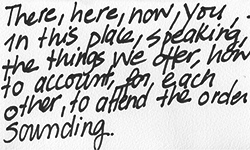 There, here, now, you,
in this place, speaking,
the things we offer, how
to account, for, each
other, to attend the order
Sounding.